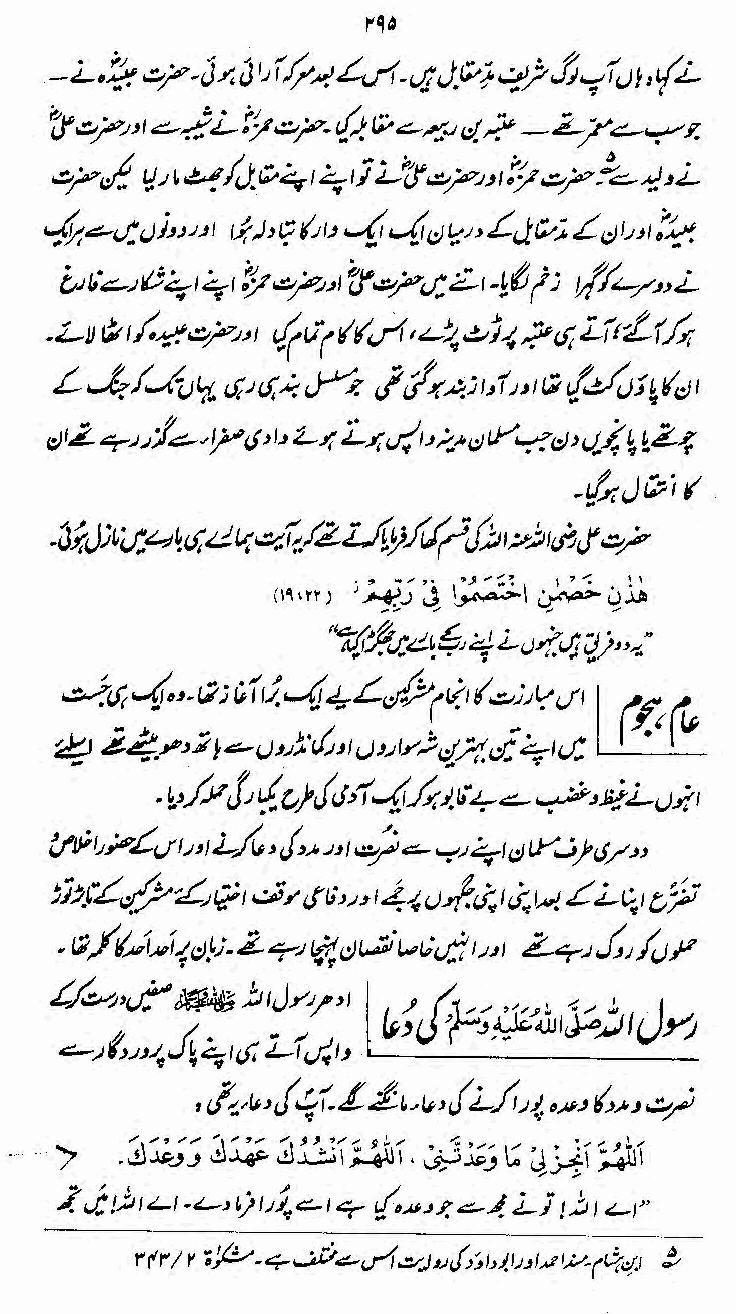 ۲۹۵
نے کہا، ہاں آپ لوگ شریف مدِّ مقابل ہیں۔ اس کے بعد معرکہ آرائی ہوئی۔ حضرت عبیدہؓ نے —
جو سب سے معمّر تھے — عتبہ بن ربیعہ سے مقابلہ کیا۔ حضرت حمزہؓ نے شیبہ سے اور حضرت علیؓ
نے ولید سے۔ؔ۵ حضرت حمزہؓ اور حضرت علیؓ نے تو اپنے اپنے مقابل کو جھٹ مار لیا لیکن حضرت
عبیدہؓ اور ان کے مدِّ مقابل کے درمیان ایک ایک وار کا تبادلہ ہُوا اور دونوں میں سے ہر ایک
نے دوسرے کو گہرا زخم لگایا۔ اتنے میں حضرت علیؓ اور حضرت حمزہؓ اپنے اپنے شکار سے فارغ
ہو کر آ گئے، آتے ہی عتبہ پر ٹوٹ پڑے، اس کا کام تمام کیا اور حضرت عبیدہ کو اٹھا لائے۔
ان کا پاؤں کٹ گیا تھا اور آواز بند ہو گئی تھی جو مسلسل بند ہی رہی یہاں تک کہ جنگ کے
چوتھے یا پانچویں دن جب مسلمان مدینہ واپس ہوتے ہوئے وادی صفراء سے گذر رہے تھے ان
کا انتقال ہو گیا۔
حضرت علی رضی اللہ عنہ اللہ کی قسم کھا کر فرمایا کرتے تھے کہ یہ آیت ہمارے ہی بارے میں نازل ہوئی۔
هٰذٰنِ خَصْمٰنِ اخْتَصَمُوْا فِيْ رَبِّهِمْ ز (۱۹:۲۲)
”یہ دو فریق ہیں جنہوں نے اپنے رب کے بارے میں جھگڑا کیا ہے“
عام ہجوم
اس مبارزت کا انجام مشرکین کے لیے ایک بُرا آغاز تھا۔ وہ ایک ہی جَست
میں اپنے تین بہترین شہ سواروں اور کمانڈروں سے ہاتھ دھو بیٹھے تھے اسلئے
انہوں نے غیظ و غضب سے بے قابو ہو کر ایک آدمی کی طرح یکبارگی حملہ کر دیا۔
دوسری طرف مسلمان اپنے رب سے نصرت اور مدد کی دعا کرنے اور اس کے حضور اخلاص و
تضرُّع اپنانے کے بعد اپنی اپنی جگہوں پر جمے اور دفاعی موقف اختیار کئے مشرکین کے تابڑ توڑ
حملوں کو روک رہے تھے اور انہیں خاصا نقصان پہنچا رہے تھے۔ زبان پر اَحد اَحد کا کلمہ تھا۔
رسول اللہ صَلَّی اللہُ عَلَیْہِ وَسَلَّم کی دُعا
ادھر رسول اللہ ﷺ صفیں درست کر کے
واپس آتے ہی اپنے پاک پروردگار سے
نصرت و مدد کا وعدہ پورا کرنے کی دعاء مانگنے لگے۔ آپؐ کی دعاء یہ تھی :
اَللّٰهُمَّ اَنْجِزْ لِيْ مَا وَعَدْتَّنِيْ ، اَللّٰهُمَّ اَنْشُدُكَ عَهْدَكَ وَوَعْدَكَ.
”اے اللہ! تو نے مجھ سے جو وعدہ کیا ہے اسے پُورا فرما دے۔ اے اللہ! میں تجھ
؎۵ ابن ہشام۔ مسند احمد اور ابوداؤد کی روایت اس سے مختلف ہے۔ مشکوٰۃ ۲/۳۴۳